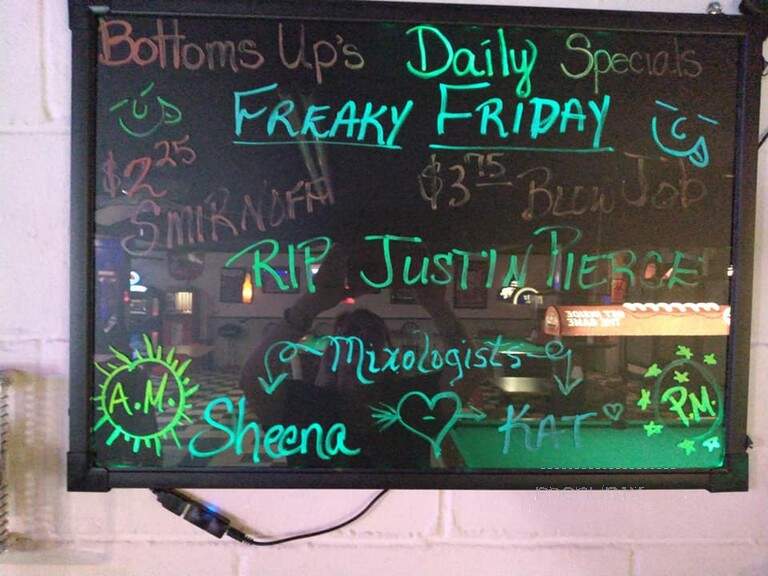 Bottoms Up's Daily Specials
FREAKY FRIDAY
$2.25 $3.75 BLOW JOB
SMIRNOFF
RIP JUSTIN PIERCE
Mixologists
A.M. Sheena KAT P.M.